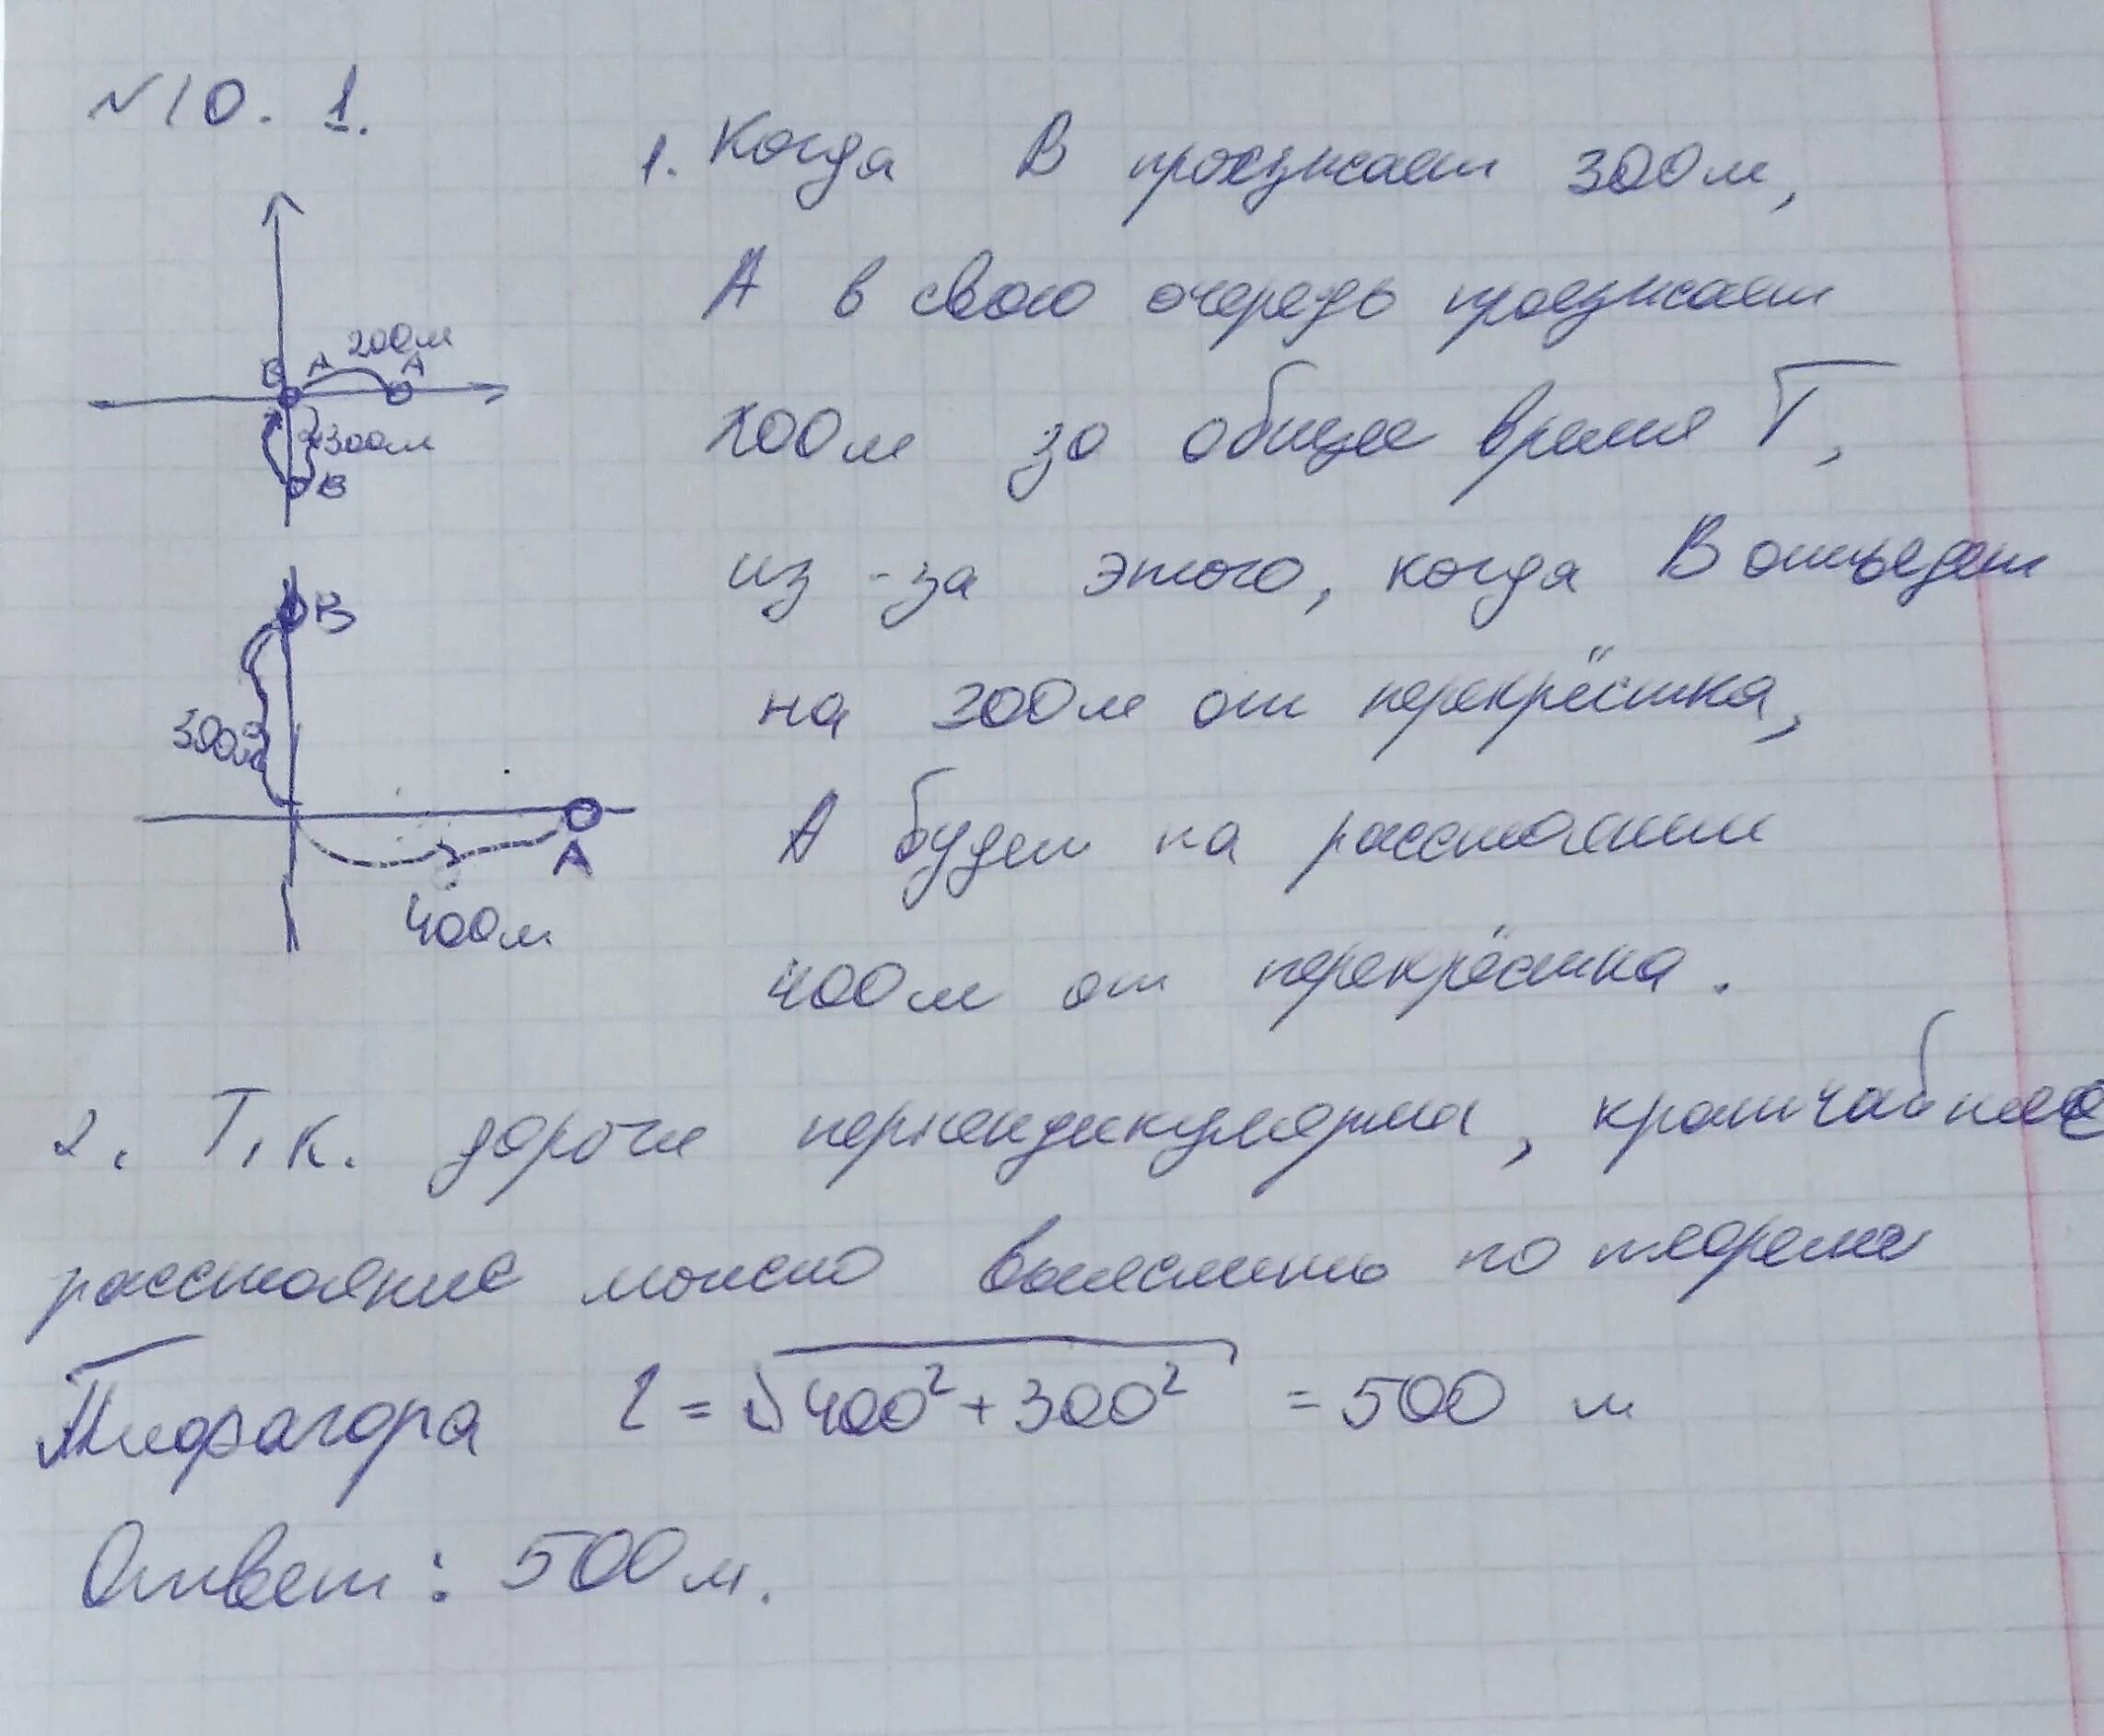 №10. 1.
1. Когда В проезжает 300м,
А в свою очередь проезжает
200м за общее время Т,
из-за этого, когда В отъедет
на 300м от перекрёстка,
А будет на расстоянии
400м от перекрёстка.
200м
В А А
300м
В
В
300м
А
400м
2. Т.к. дороги перпендикулярны, кротчабшее
расстояние можно вычислить по теореме
Пифагора l = √400² + 300² = 500 м
Ответ: 500м.